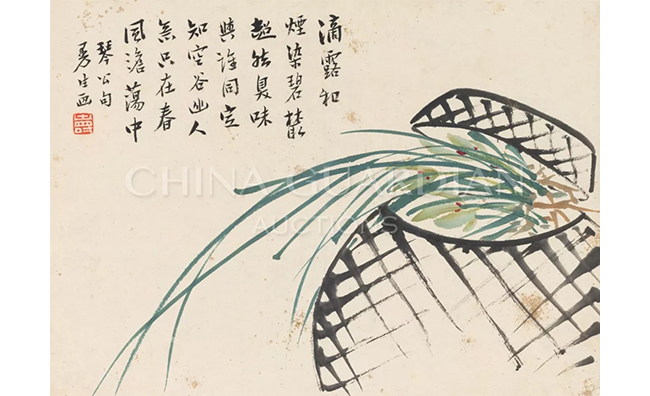 滴露和
煙染碧叢
超然臭味
與誰同定
知空谷幽人
意只在春
風澹蕩中
琴公句
勇生画
CHINA GUARDIAN
AUCTIONS